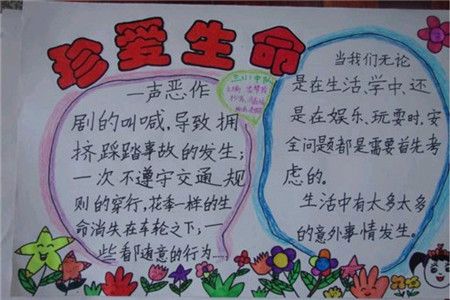 珍爱生命
一声恶作
剧的叫喊,导致拥
挤踩踏事故的发生;
一次不遵守交通规
则的穿行,花季一样的生
命消失在车轮之下;一
些看随意的行为……
当我们无论
是在生活,学中,还
是在娱乐、玩耍时,安
全问题都是需要首先考
虑的。
生活中有太多太多
的意外事情发生。